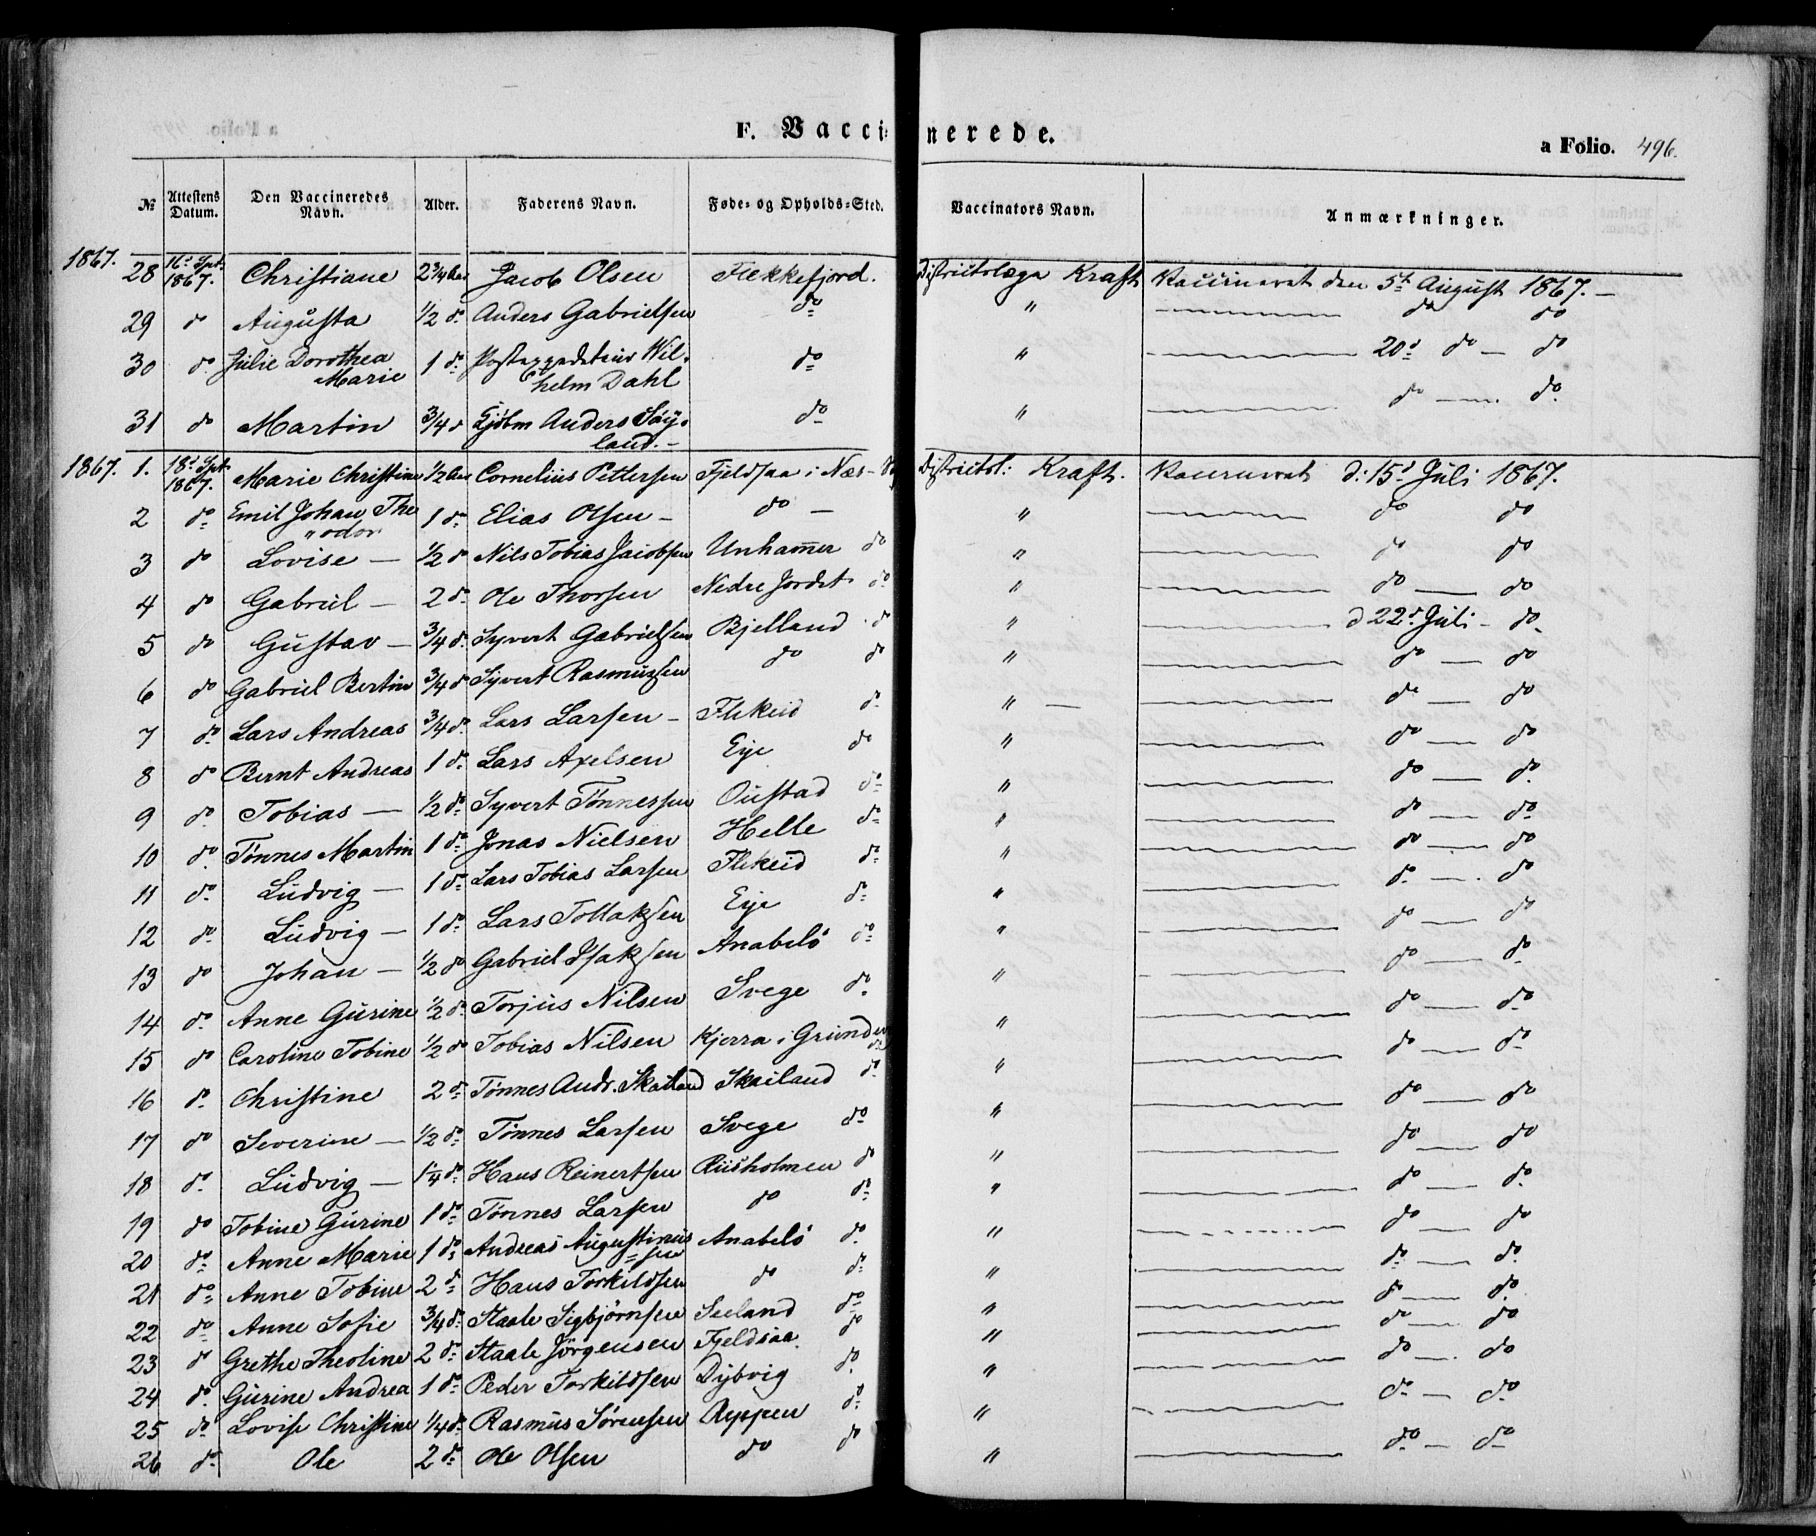 F. Vaccinerede.
a Folio. 496.
№ Attestens Datum. Den Vaccineredes Navn. Alder. Faderens Navn. Føde- og Opholds-Sted. Vaccinators Navn. Anmærkninger.
1867. 28 16d Spt. 1867. Christiane 2 3/4 Aar Jacob Olsen Flekkefjord. Districtslæge Kraft Vaccineret den 5t August 1867. –
29 do Augusta 1/2 do Anders Gabrielsen do " do do
30 do Julie Dorothea Marie 1 do Wilhelm Dahl do " 20d do – do
31 do Martin 3/4 do Anders Søyland. – do " do — do
1867. 1. 18d Spt. 1867. Marie Christine 1/2 Aar Cornelius Pettersen Fjeldsaa i Næs Districtsl: Kraft. Vaccineret d: 15d Juli 1867.
2 do Emil Johan Theodor 1 do Elias Olsen – do – " do do
3 do Lovise — 1/2 do Nils Tobias Jacobsen Unhamer do " do do
4 do Gabriel – 2 do Ole Thorsen Nedre Jordet do " do — do
5 do Gustav – 3/4 do Syvert Gabrielsen Bjelland do " d 22d Juli – do
6 do Gabriel Bertin 3/4 do Syvert Rasmussen do do " do — do
7 do Lars Andreas 3/4 do Lars Larsen – Flikeid do " — do — do
8 do Bernt Andreas 1 do Lars Axelsen Eye do " do — do
9 do Tobias — 1/2 do Syvert Tønnessen Oustad do " do — do
10 do Tønnes Martin 1 do Jonas Nielsen Helle do " do — do
11 do Ludvig — 1 do Lars Tobias Larsen Flikeid do " do — do
12 do Ludvig – 1 do Lars Tollaksen Eye do " do — do
13 do Johan – 1/2 do Gabriel Isaksen Anabelø do " do — do
14 do Anne Gurine 1/2 do Torjus Nilsen Svege do " do — do
15 do Caroline Tobine 1/2 do Tobias Nilsen Kjerra i Grunden do " do — do
16 do Christine 2 do Tønnes Andr. Skailand Skailand do " do — do
17 do Severine — 1/2 do Tønnes Larsen Svege do " do — do
18 do Ludvig — 1/4 do Hans Reinertsen Riisholmen do " do — do
19 do Tobine Gurine 1 do Tønnes Larsen do do " do — do
20 do Anne Marie 1 do Andreas Augustinussen Anabelø do " do — do
21 do Anne Tobine 2 do Hans Torkildsen do do " do — do
22 do Anne Sofie 3/4 do Staale Sigbjørnsen Seeland do " do — do
23 do Grethe Theoline 2 do Staale Jørgensen Fjeldsaa do " do — do
24 do Gurine Andrea 1 do Peder Torkildsen Dybvig do " do — do
25 do Lovise Christine 1/4 do Rasmus Sørensen Ryppen do " do — do
26 do Ole 2 do Ole Olsen do do " do — do